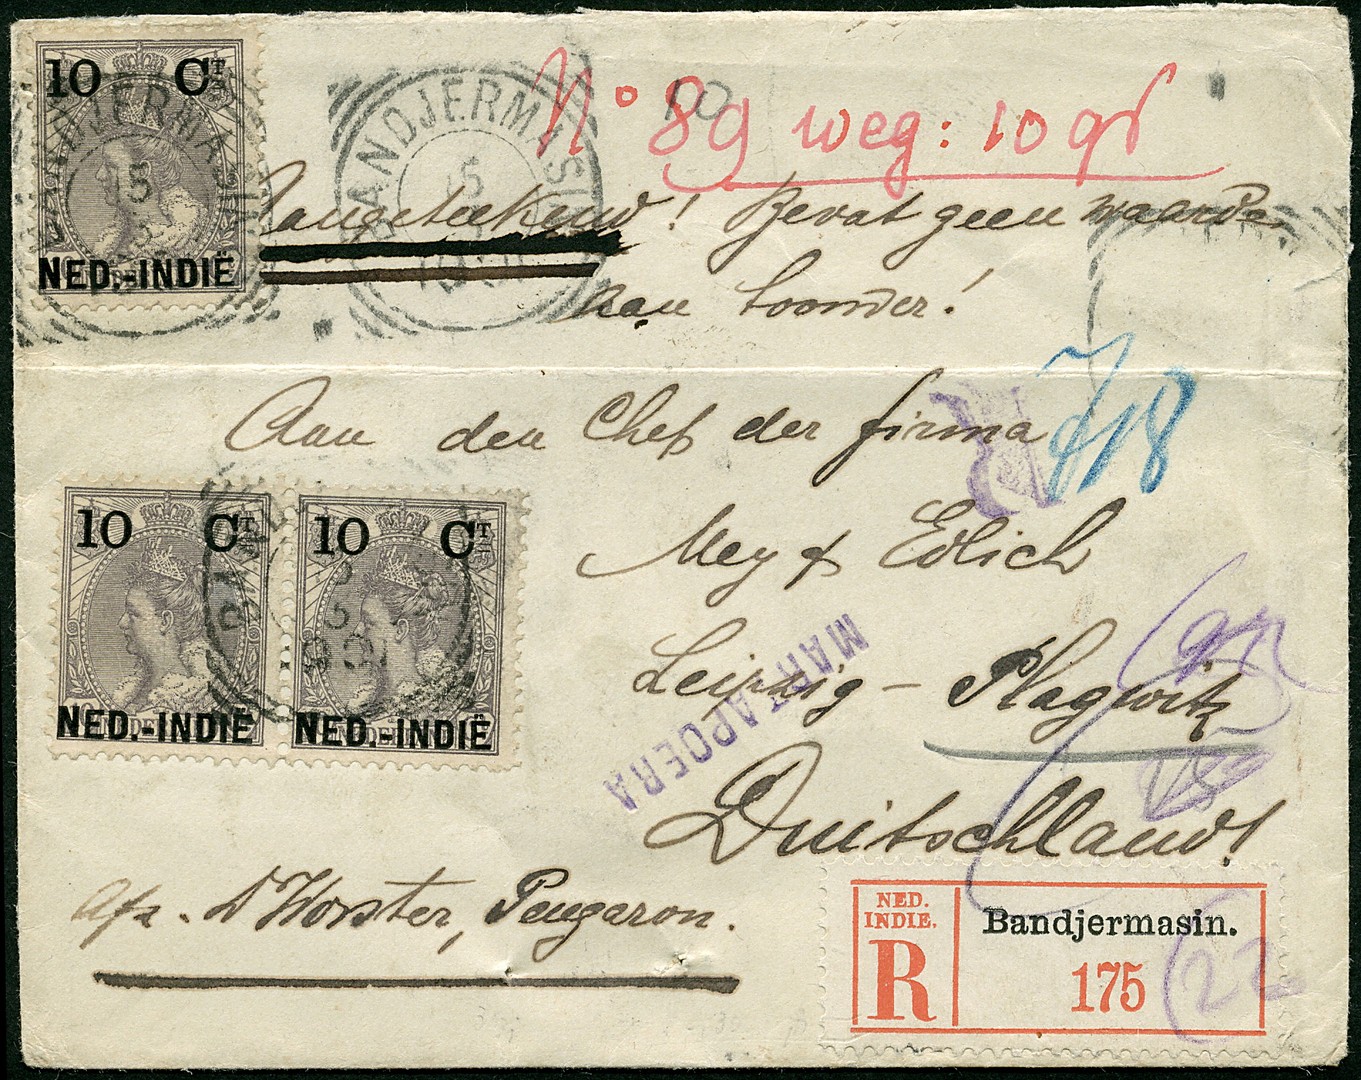 10 CT
NED.-INDIË
BANDJERMASIN
15
No 89 weg: 10 gr
Aangeteekend! Bevat geen waarde
aan toonder!
718
Aan den Chef der firma
Mey & Edlich
Leipzig - Plagwitz
Duitschland!
10 CT 10 CT
NED.-INDIË NED.-INDIË
MARTAPOERA
afz. D'Horster, Pengaron.
NED.
INDIE.
R
Bandjermasin.
175
22